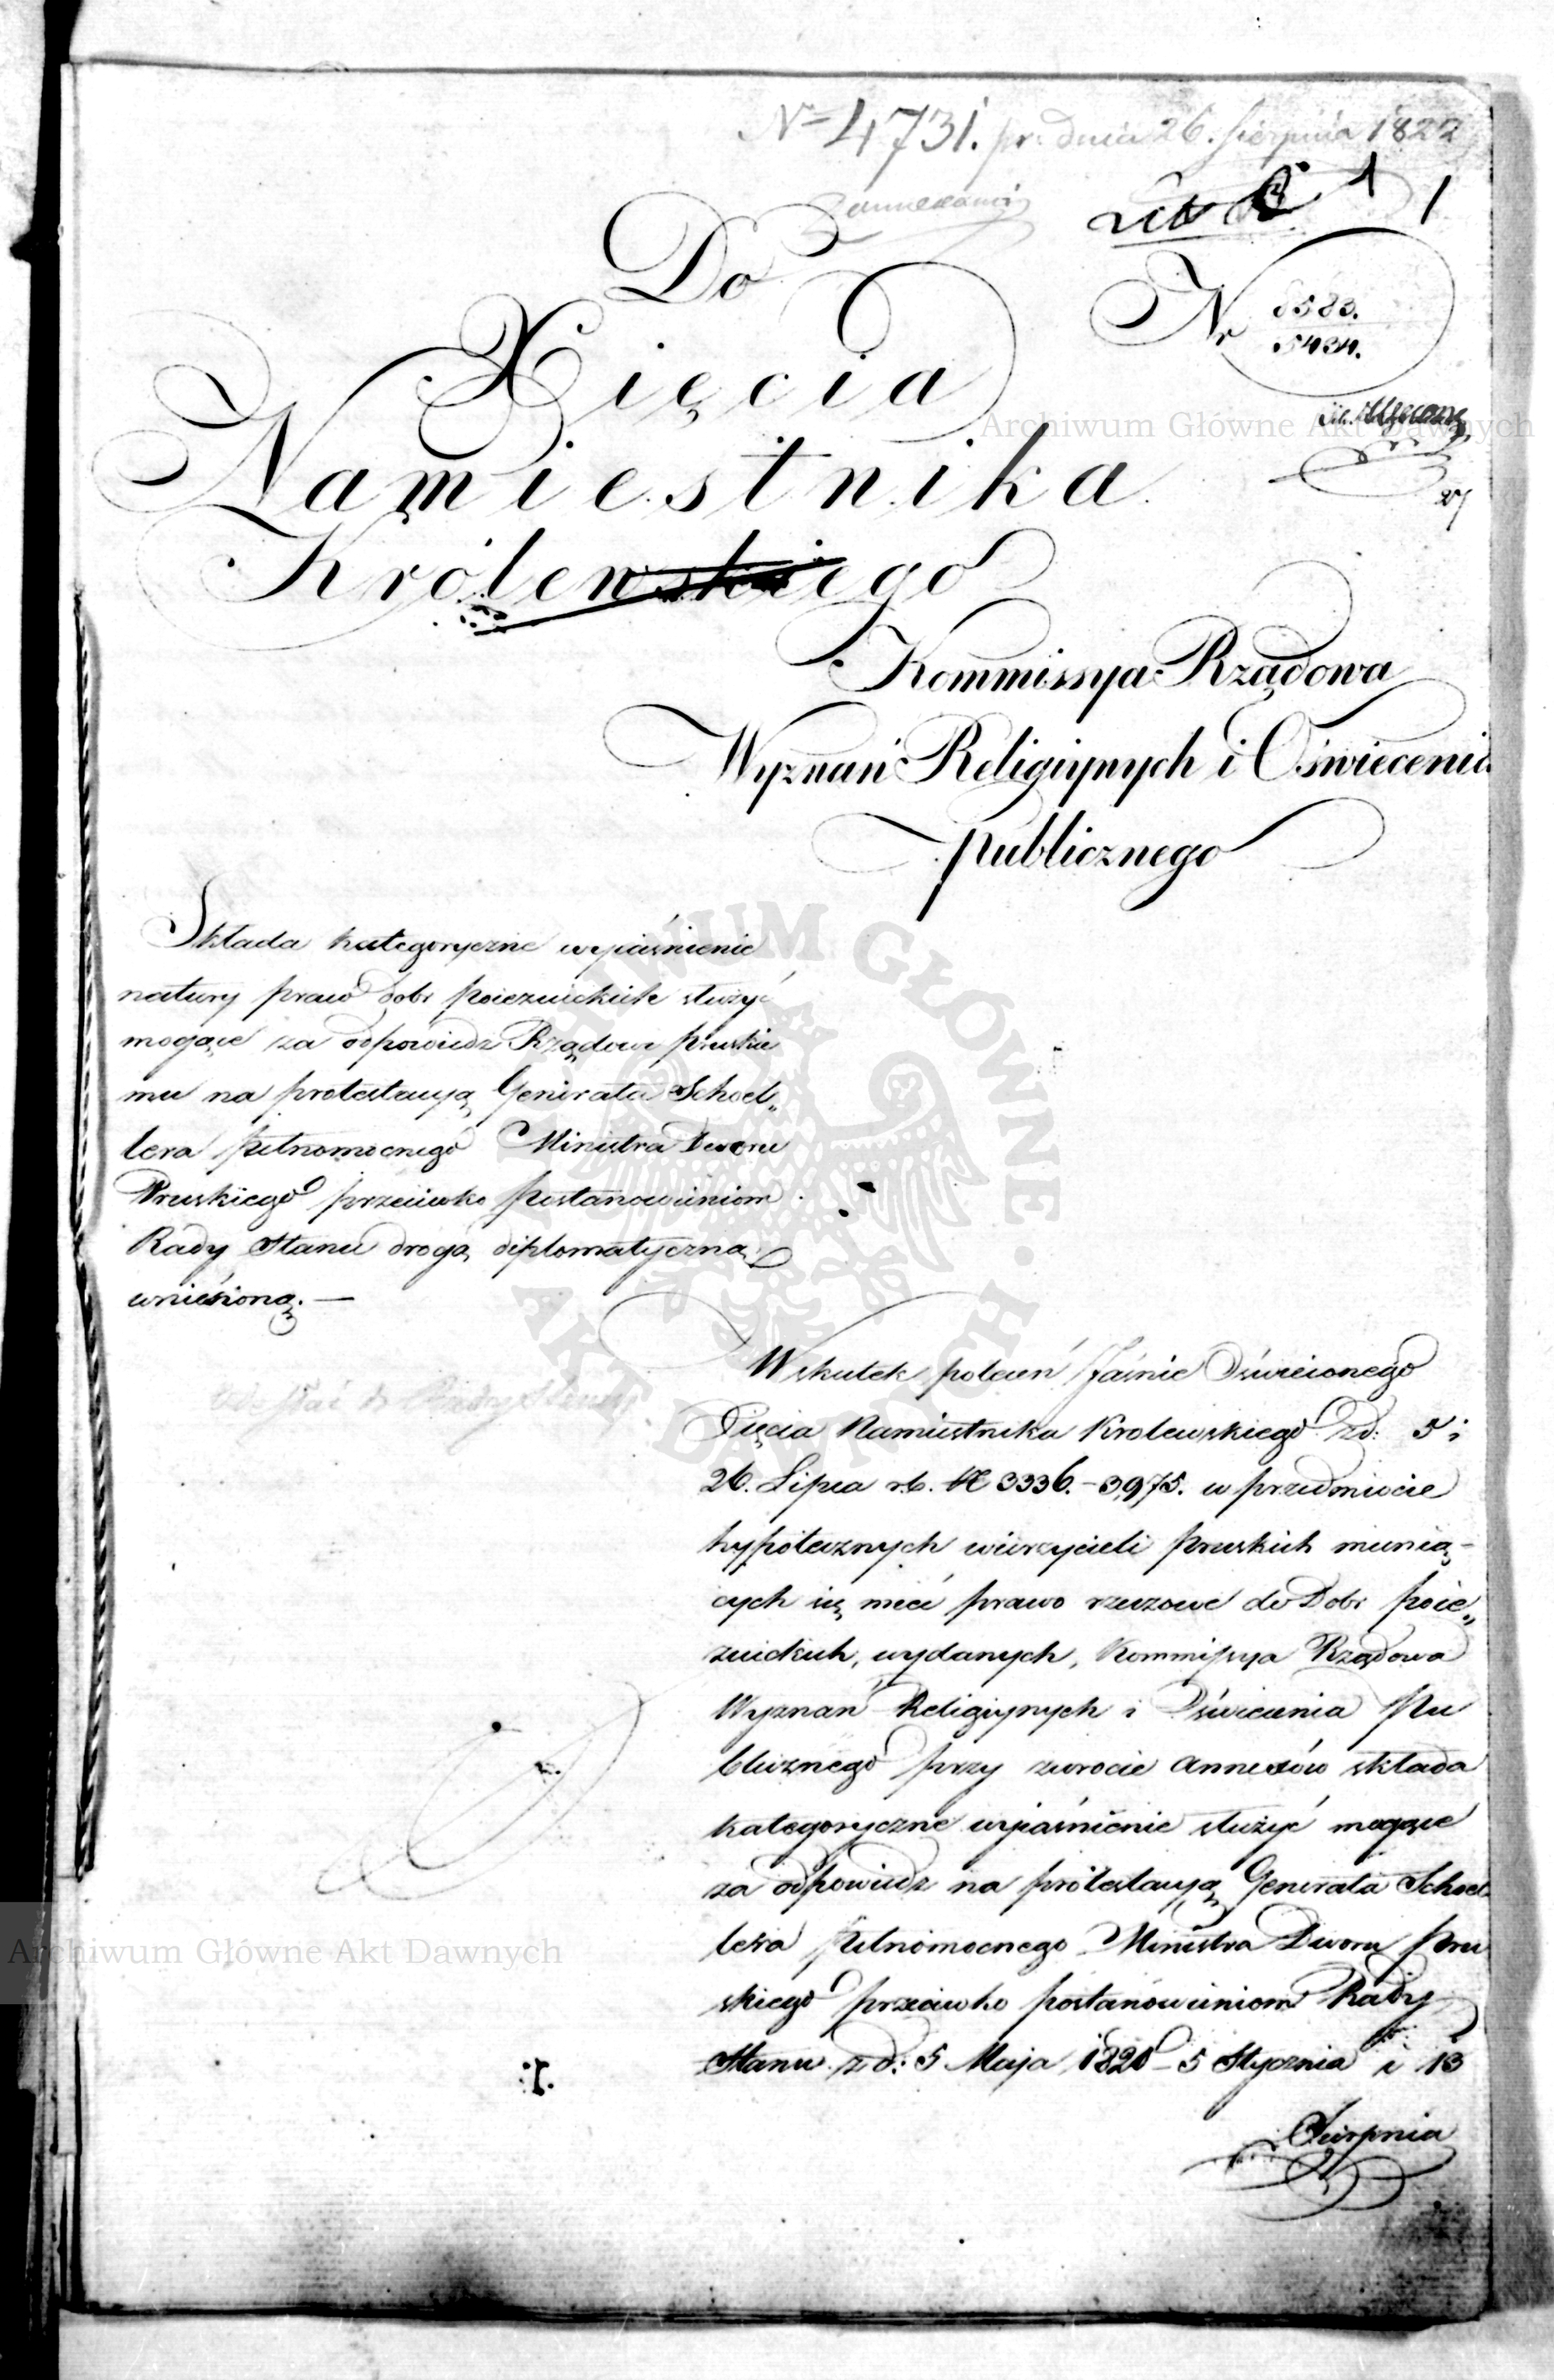 Nº 4731. pr. dnia 26. Sierpnia 1822
1
Do
Nr 8583.
5434.
Xięcia
Archiwum Główne Akt Dawnych
Namiestnika
27
Królewskiego
Kommissya Rządowa
Wyznań Religiynych i Oświecenia
publicznego
Składa kategoryczne wyiaśnienie
natury praw dobr poiezuickich służyć
mogące za odpowiedz Rządowi prusкie
mu na protestacyą Generała Schoel„
lera pełnomocnego Ministra Dworu
Pruskiego przeciwko postanowieniom
Rady Stanu drogą diplomatyczną
wniesioną.—
ARCHIWUM GŁÓWNE AKT DAWNYCH
Wskutek poleceń Jaśnie Oświeconego
Xięcia Namiestnika Krolewskiego z d: 5 i
26. Lipca r.b. N 3336.–3975. w przedmiocie
hypotecznych wierzycieli pruskich mienią-
cych się mieć prawo rzeczowe do Dobr poie„
zuickich, wydanych, Kommissya Rządowa
Wyznań Religiynych i Oświecenia Pu
blicznego przy zwrocie annexów składa
kategoryczne wyiaśnienie służyć mogące
za odpowiedz na protestacyą Generała Schoel
lera pełnomocnego Ministra Dworu Pru
skiego przeciwko postanowieniom Rady
Archiwum Główne Akt Dawnych
Stanu z d: 5 Maja 1820 – 5 Stycznia i 13
Sierpnia